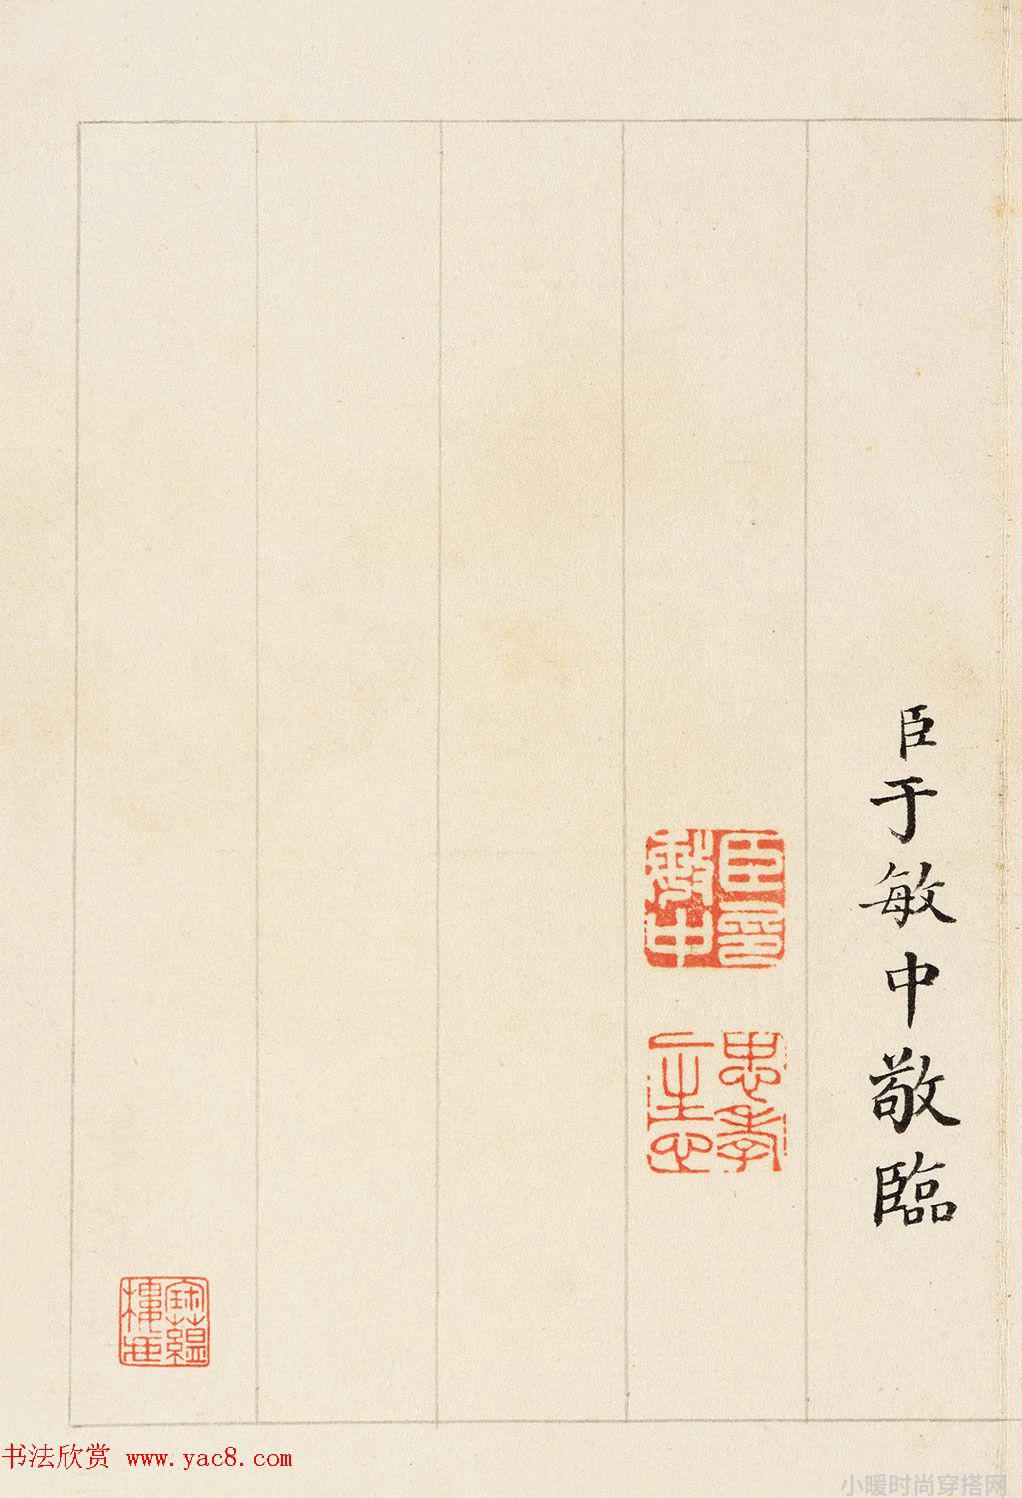 臣于敏中敬臨
臣于
敏中
忠孝
一生心
寶蘊
樓藏
书法欣赏 www.yac8.com
小暖时尚穿搭网